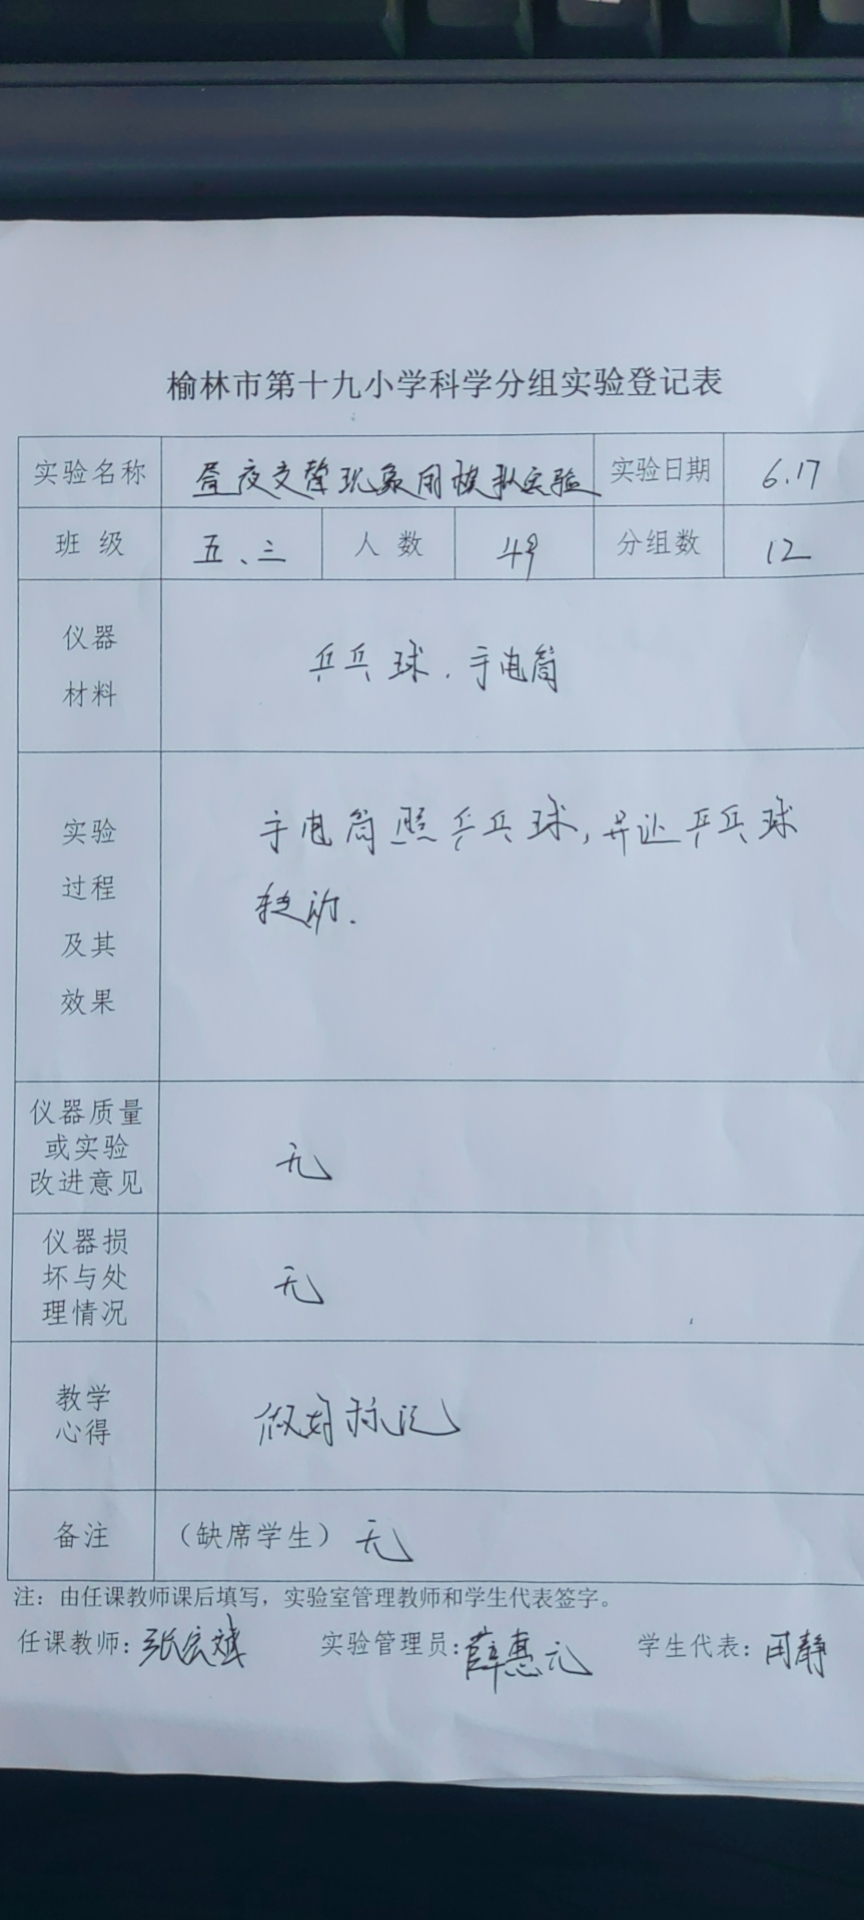 榆林市第十九小学科学分组实验登记表
实验名称 昼夜交替现象的模拟实验 实验日期 6.17
班 级 五、三 人 数 49 分组数 12
仪器
材料
乒乓球.手电筒
实验
过程
及其
效果
手电筒照乒乓球,并让乒乓球
转动.
仪器质量
或实验
改进意见
无
仪器损
坏与处
理情况
无
教学
心得
做好标记
备注 (缺席学生) 无
注:由任课教师课后填写,实验室管理教师和学生代表签字。
任课教师:张宏斌 实验管理员:薛惠元 学生代表:静